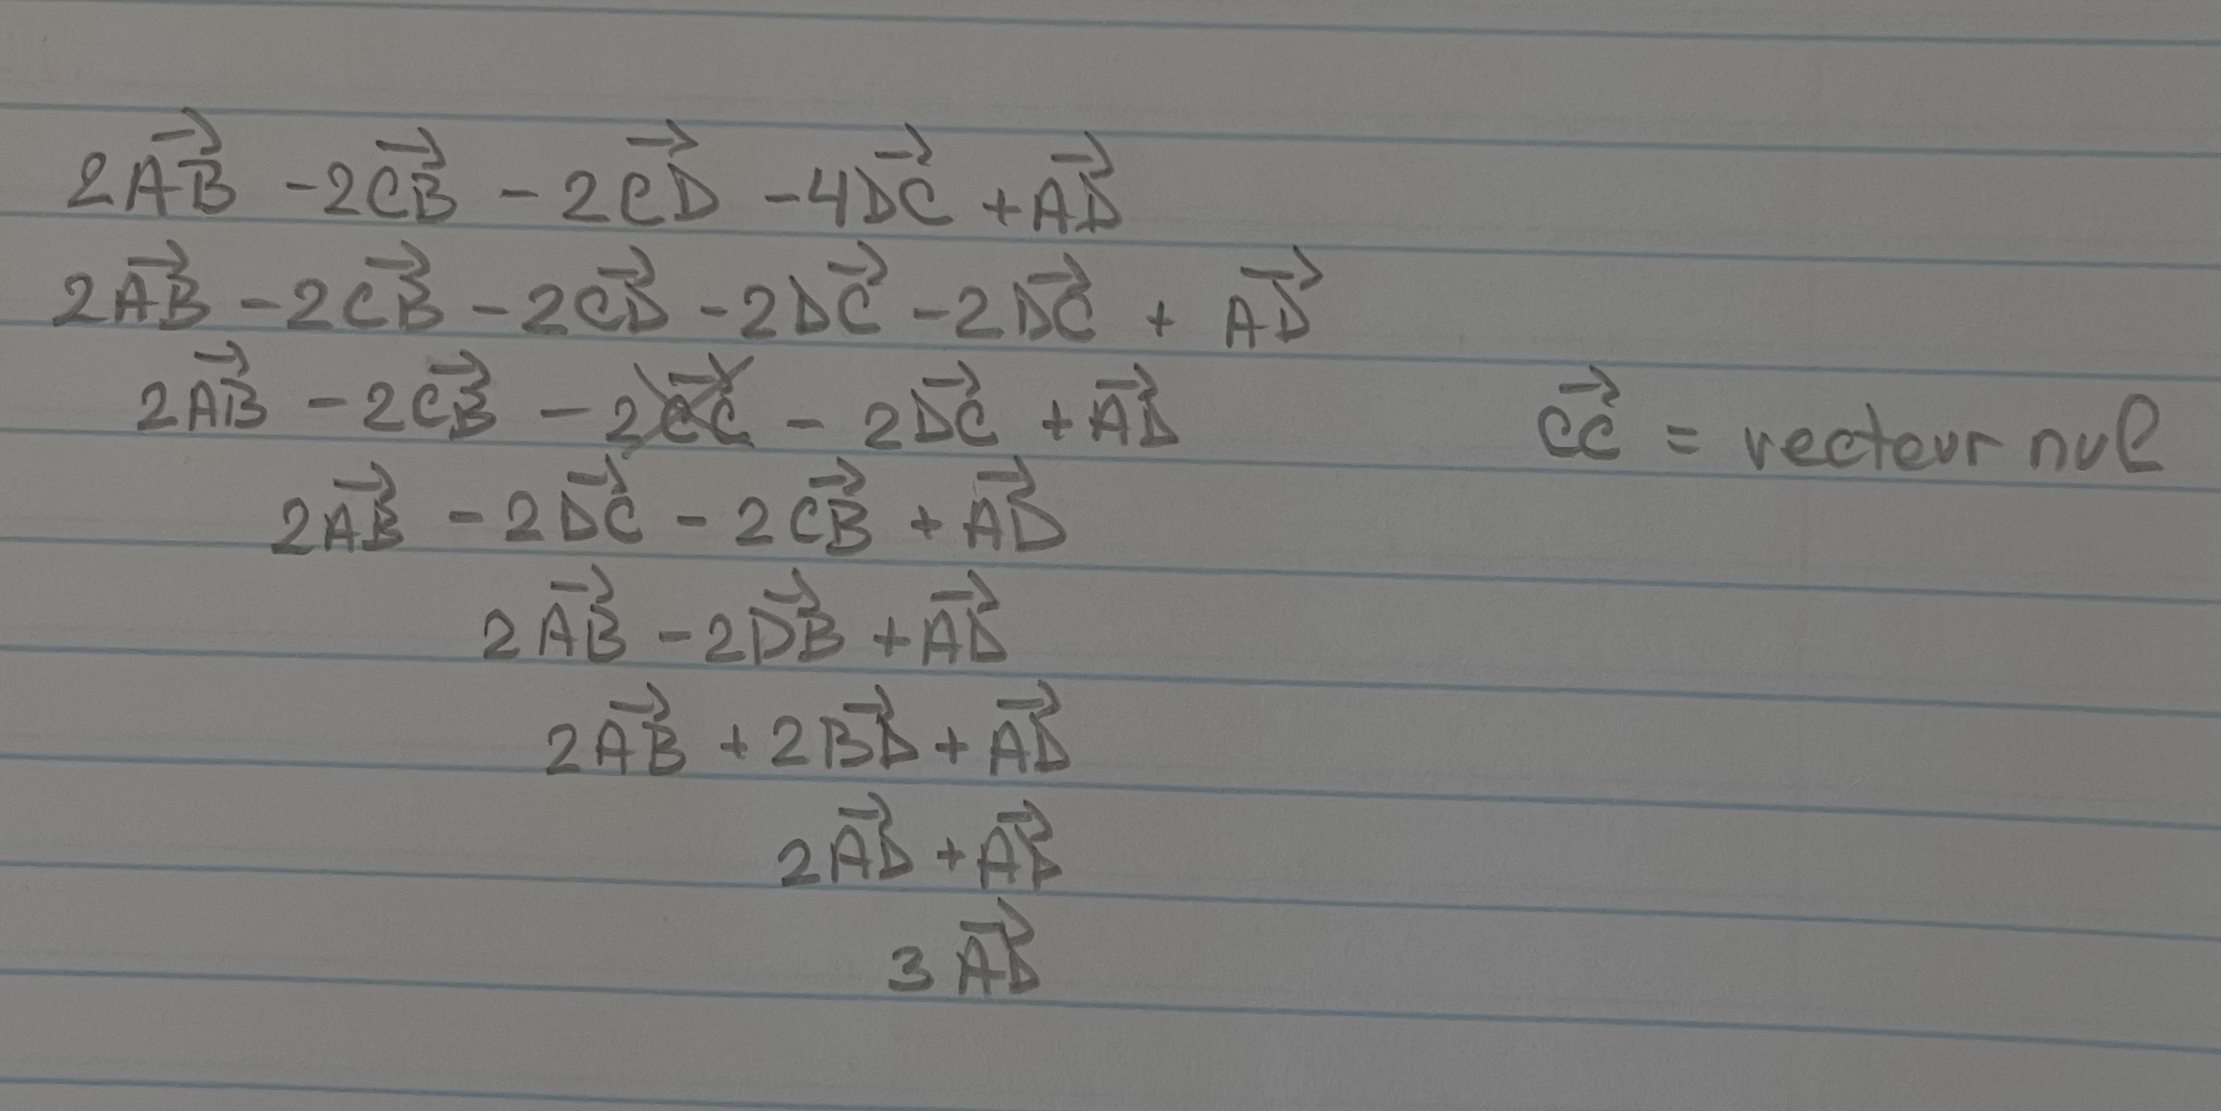 2A⃗B⃗ - 2C⃗B⃗ - 2C⃗D⃗ - 4D⃗C⃗ + A⃗D⃗
2A⃗B⃗ - 2C⃗B⃗ - 2C⃗D⃗ - 2D⃗C⃗ - 2D⃗C⃗ + A⃗D⃗
2A⃗B⃗ - 2C⃗B⃗ - 2C⃗C⃗ - 2D⃗C⃗ + A⃗D⃗ C⃗C⃗ = vecteur nul
2A⃗B⃗ - 2D⃗C⃗ - 2C⃗B⃗ + A⃗D⃗
2A⃗B⃗ - 2D⃗B⃗ + A⃗D⃗
2A⃗B⃗ + 2B⃗D⃗ + A⃗D⃗
2A⃗D⃗ + A⃗D⃗
3A⃗D⃗